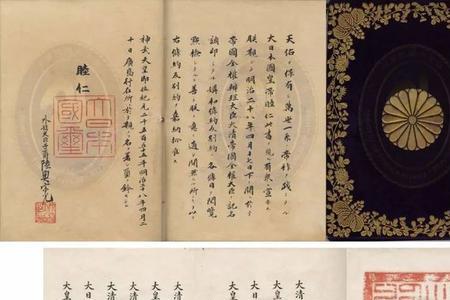 天佑ヲ保有シ萬世一系ノ帝祚ヲ踐ミタル
大日本國皇帝睦仁此書ヲ見ル有衆ニ宣示ス
朕親シク明治二十八年四月十七日下ノ關ニ於テ
帝國全權辨理大臣ト大清帝國全權大臣ト記名
調印シタル媾和條約及別約ノ各條目ヲ閲覽
點檢シタルニ善ク朕カ意ニ適シ間然スル所ナキヲ以テ
右條約及別約ヲ嘉納批准ス
神武天皇即位紀元二千五百五十五年明治二十八年四月二
十日廣島行在所ニ於テ親ラ名ヲ署シ璽ヲ鈐セシム
睦仁
大日本國璽
外務大臣子爵陸奥宗光
大清
大皇
大日
大皇
大清
大皇
大清
大皇
大日